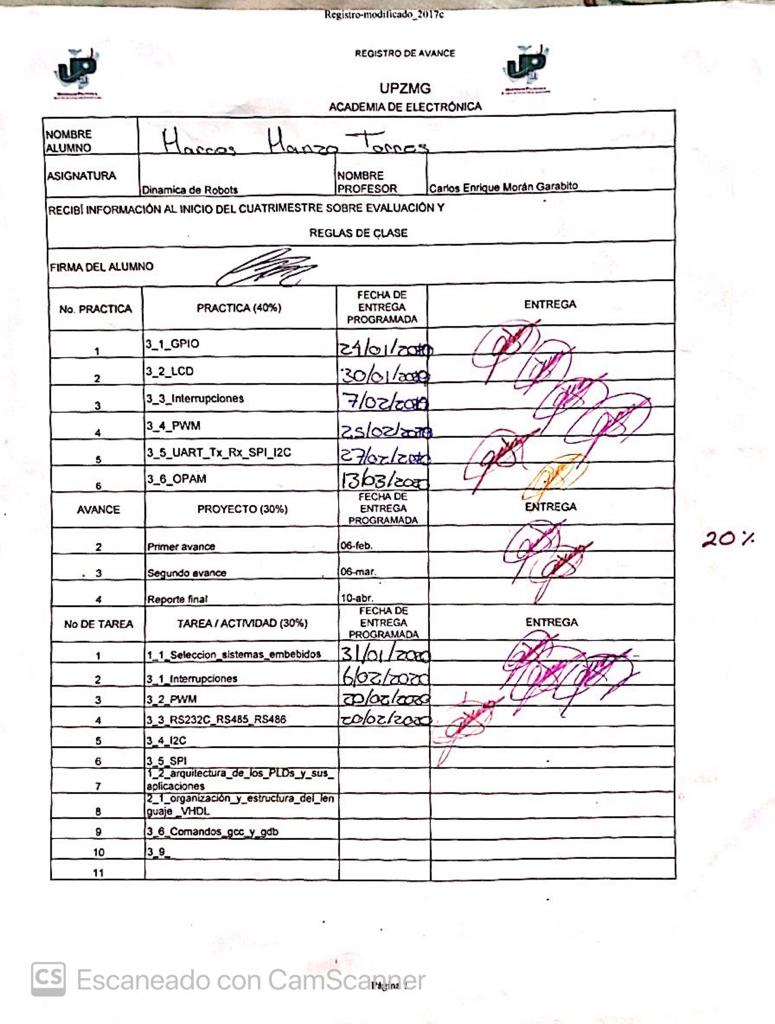 Registro-modificado_2017c
REGISTRO DE AVANCE
UP
UP
UPZMG
ACADEMIA DE ELECTRÓNICA
NOMBRE ALUMNO Marcos Manzo Torres
ASIGNATURA Dinamica de Robots NOMBRE PROFESOR Carlos Enrique Morán Garabito
RECIBÍ INFORMACIÓN AL INICIO DEL CUATRIMESTRE SOBRE EVALUACIÓN Y
REGLAS DE CLASE
FIRMA DEL ALUMNO
No. PRACTICA PRACTICA (40%) FECHA DE ENTREGA PROGRAMADA ENTREGA
1 3_1_GPIO 24/01/2020
2 3_2_LCD 30/01/2020
3 3_3_Interrupciones 7/02/2020
4 3_4_PWM 25/02/2020
5 3_5_UART_Tx_Rx_SPI_I2C 27/02/2020
6 3_6_OPAM 13/03/2020
AVANCE PROYECTO (30%) FECHA DE ENTREGA PROGRAMADA ENTREGA
2 Primer avance 06-feb. 20%
3 Segundo avance 06-mar.
4 Reporte final 10-abr.
No DE TAREA TAREA / ACTIVIDAD (30%) FECHA DE ENTREGA PROGRAMADA ENTREGA
1 1_1_Seleccion_sistemas_embebidos 31/01/2020
2 3_1_Interrupciones 6/02/2020
3 3_2_PWM 20/02/2020
4 3_3_RS232C_RS485_RS486 20/02/2020
5 3_4_I2C
6 3_5_SPI
7 1_2_arquitectura_de_los_PLDs_y_sus_aplicaciones
8 2_1_organización_y_estructura_del_lenguaje_VHDL
9 3_6_Comandos_gcc_y_gdb
10 3_9_
11
CS Escaneado con CamScanner
Página